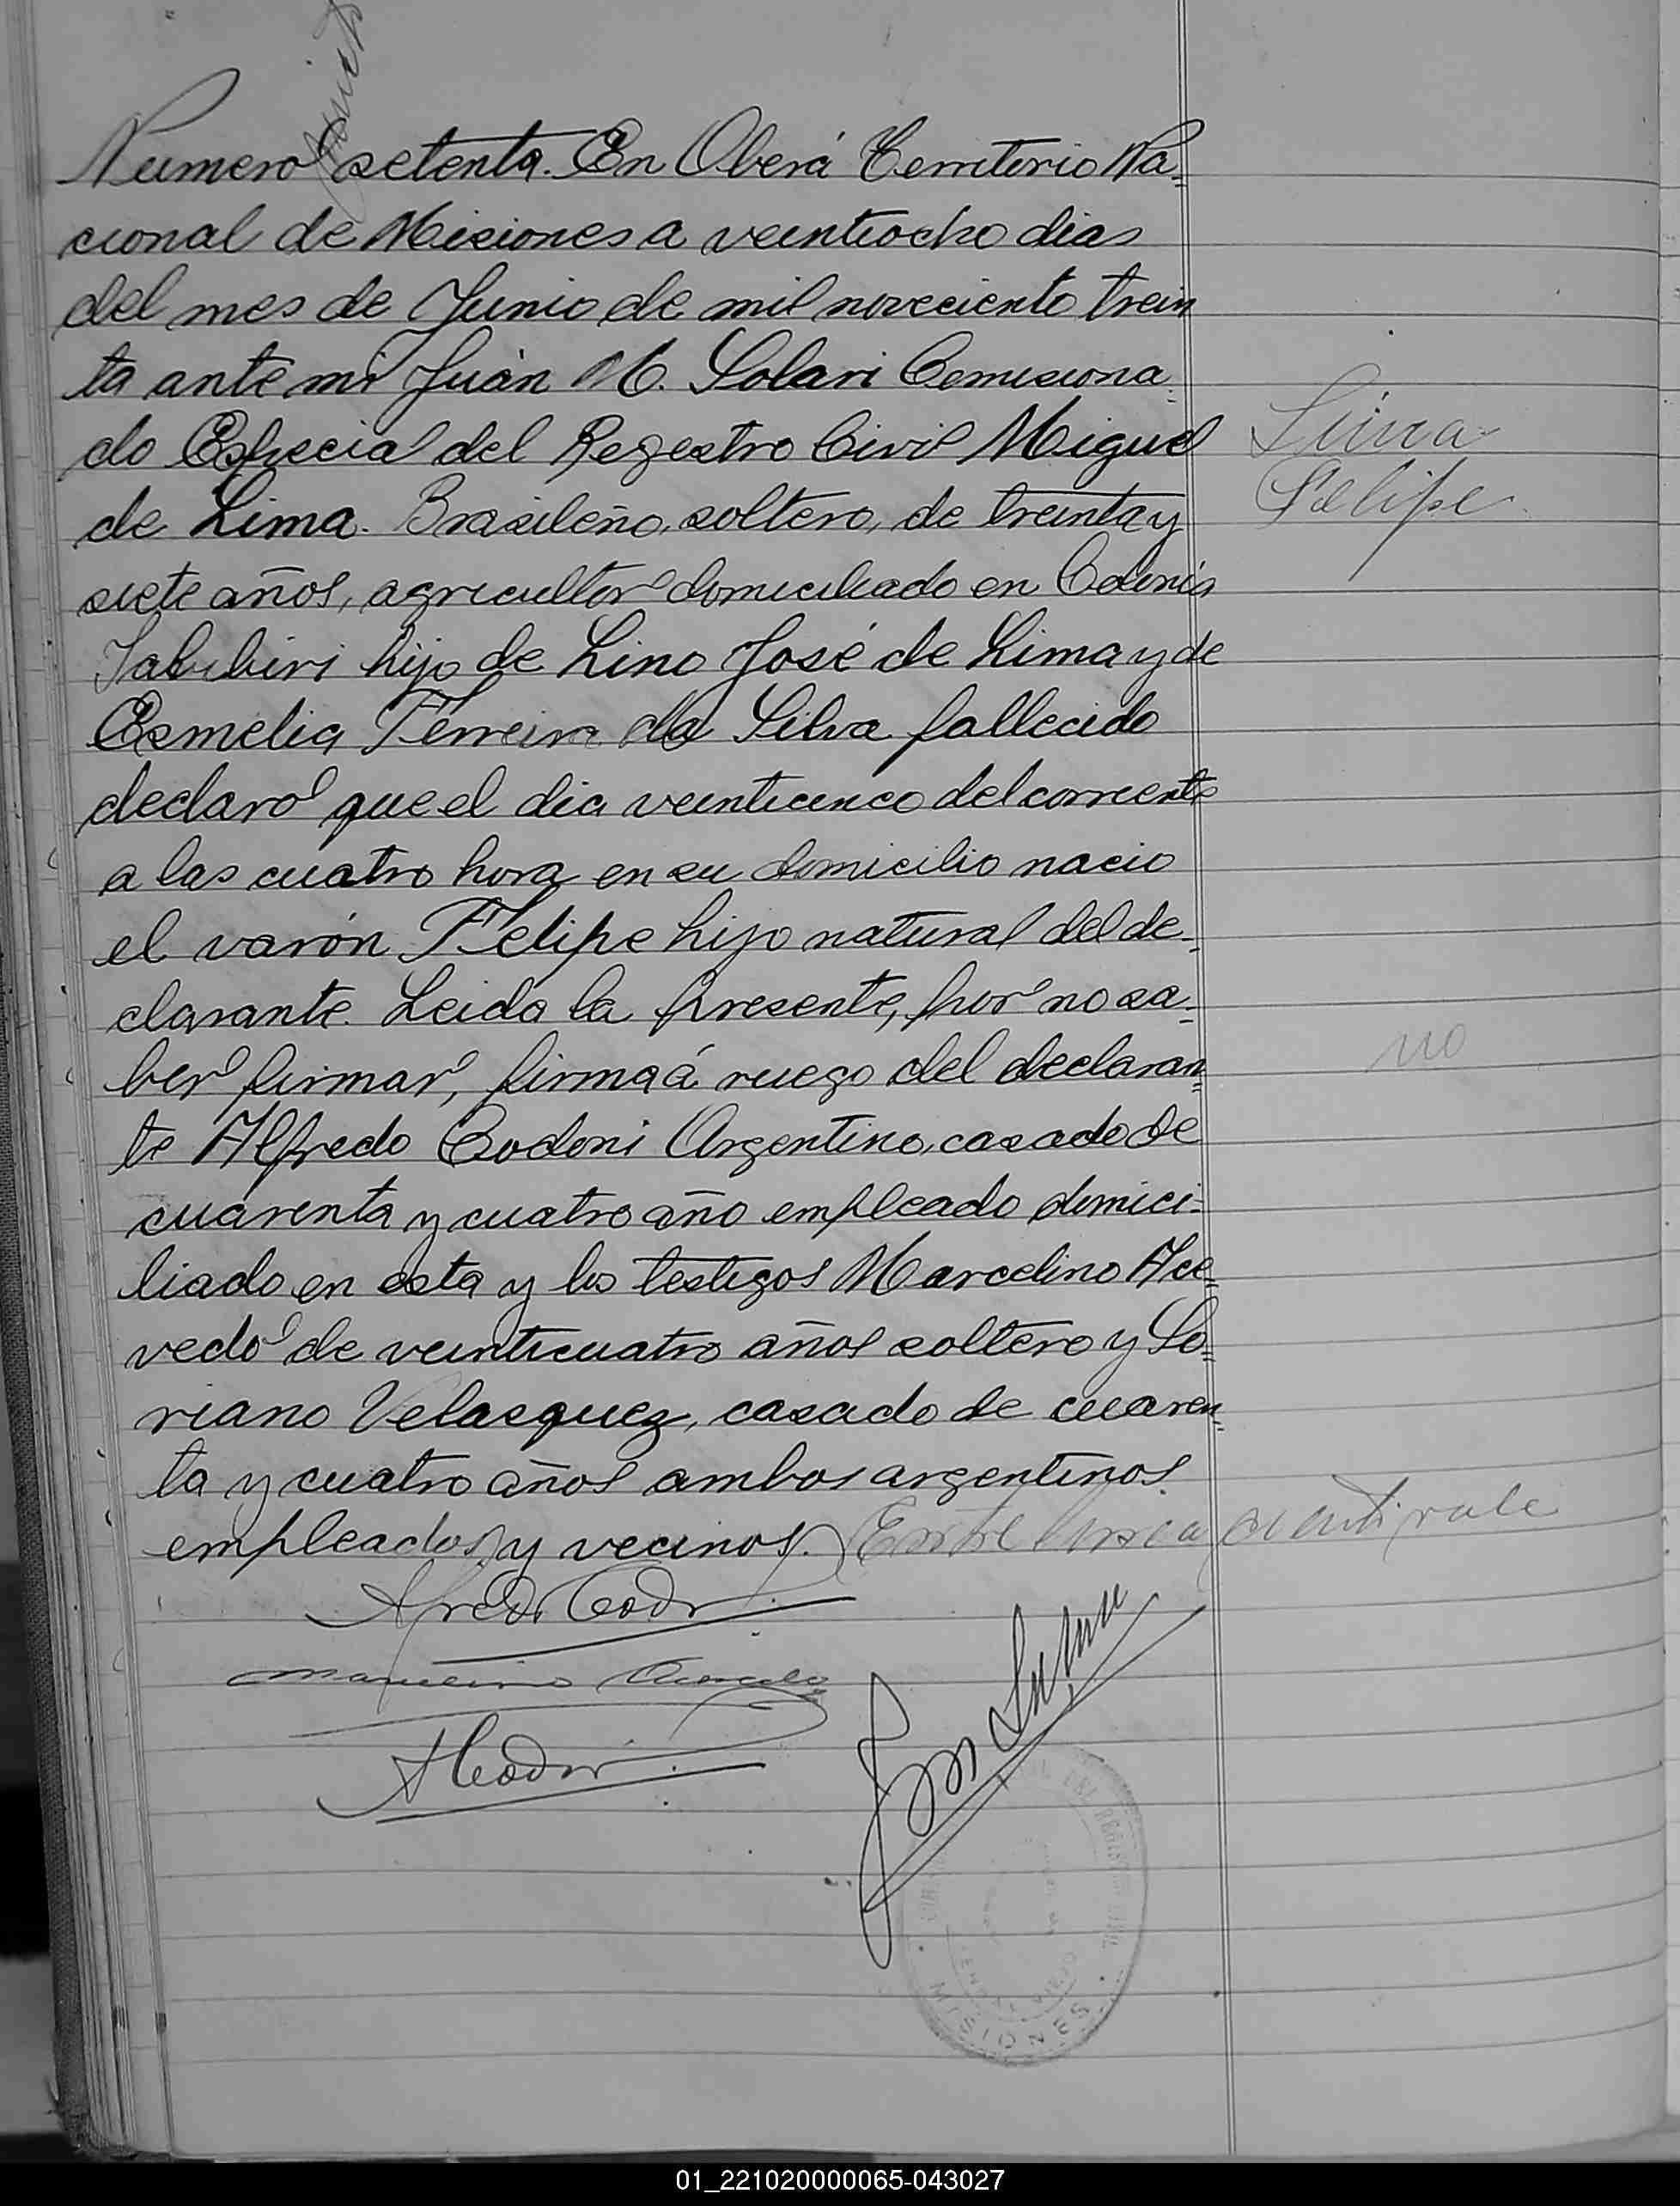 Numero setenta. En Oberá Territorio Na=
cional de Misiones a veintiocho dias
del mes de Junio de mil noveciento trein
ta ante mi Juán M. Solari Comisiona
do Especial del Regestro Civil Miguel
de Lima. Brasileño, soltero, de treinta y
siete años, agricultor domiciliado en Colonia
Yabebiri hijo de Lino José de Lima y de
Esmelia Ferreira da Silva fallecido
declaro que el dia veinticinco del corriente
a las cuatro hora en su domicilio nacio
el varón Felipe hijo natural del de-
clarante. Leida la presente, por no sa-
ber firmar, firma á ruego del declaran
te Alfredo Codoni Argentino, casado de
cuarenta y cuatro año empleado domici-
liado en esta y los testigos Marcelino Ace=
vedo de veinticuatro años soltero y So=
riano Velasquez, casado de cuaren
ta y cuatro años ambos argentinos.
empleados y vecinos.
Lima
Felipe
no
vale
MISIONES
01_221020000065-043027